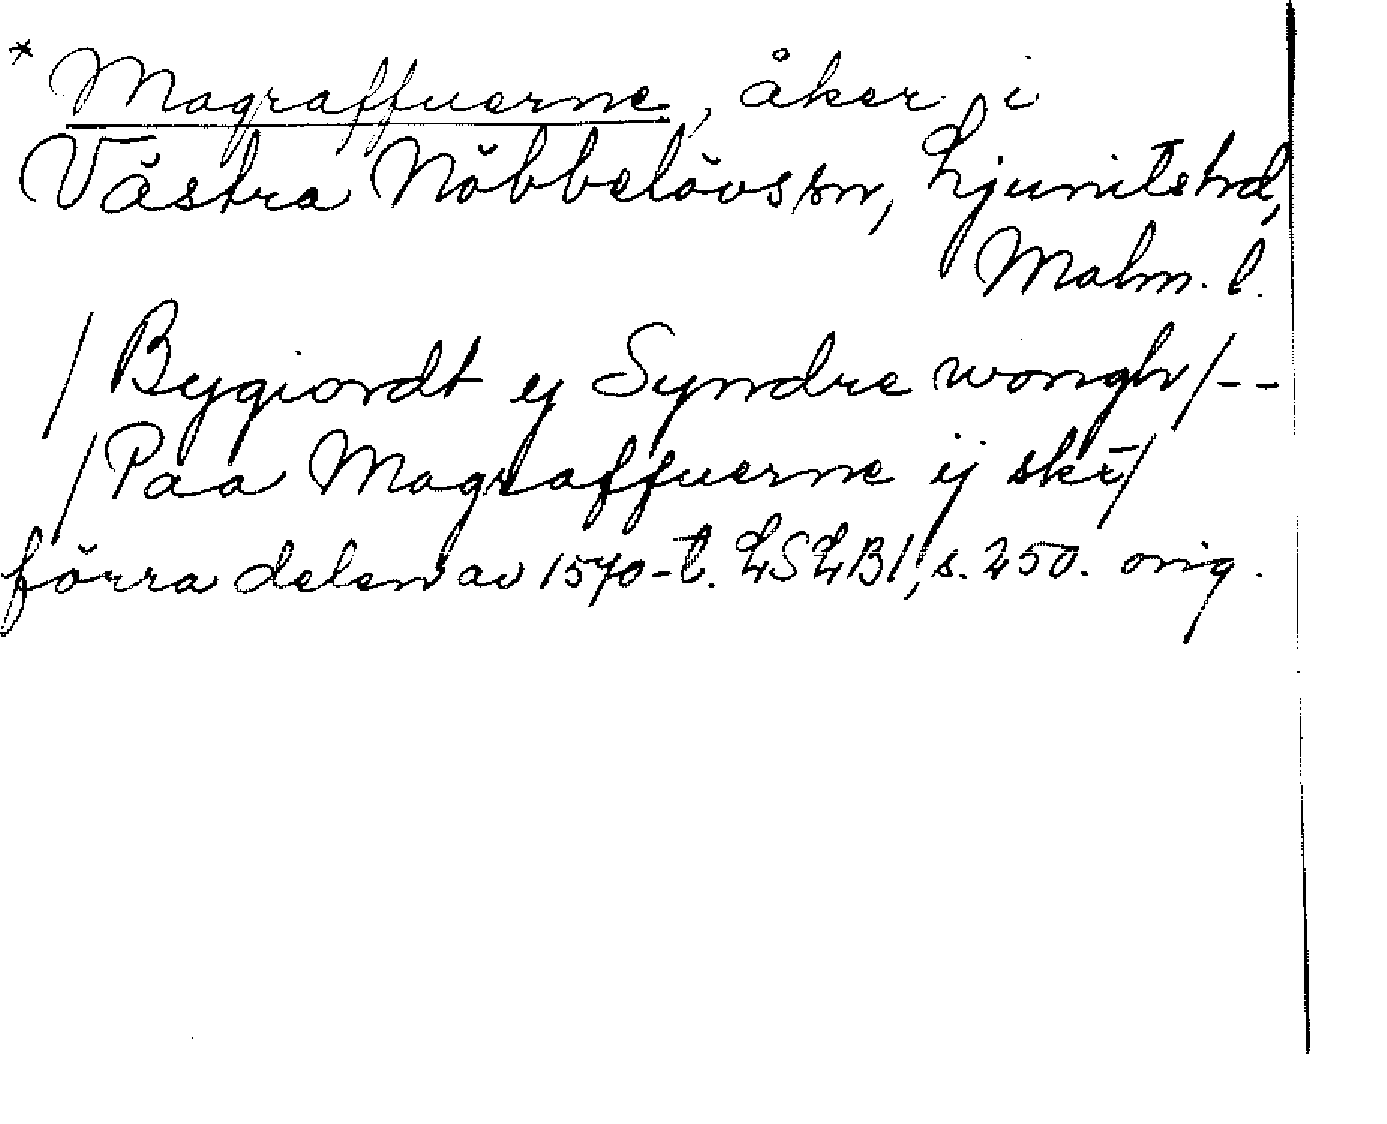 * Magraffuerne, åker i
Västra Nöbbelövs sn, Ljunits hd,
Malm. l.
/ Bygiordt ij Syndre wongh / - -
/ Paa Magraffuerne ij ske /
förra delen av 1570-t. LSLB I, s. 250. orig.